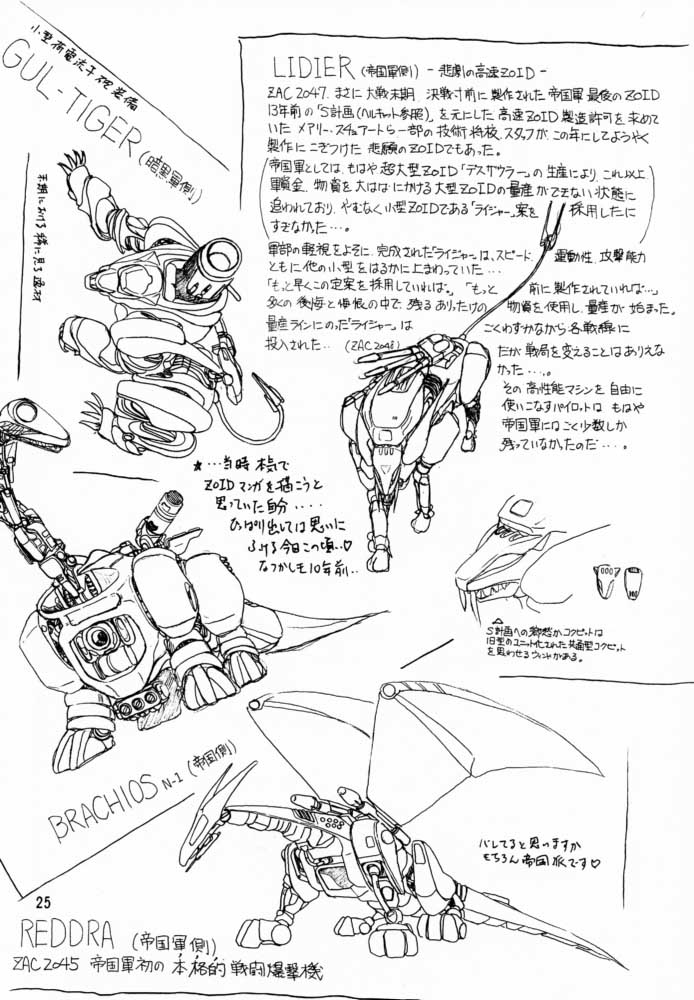 小型荷電流子砲装備
GUL-TIGER (暗黒軍側)
LIDIER (帝国軍側) - 悲劇の高速ZOID -
ZAC 2047. まさに大戦末期 決戦寸前に製作された帝国軍最後のZOID
13年前の「S計画(ヘルキャット参照)」を元にした高速ZOID製造許可を求めて
いたメアリー.スチュアートら一部の技術将校、スタッフが、この年にしてようやく
製作にこぎつけた悲願のZOIDでもあった。
帝国軍としては、もはや超大型ZOID「デスザウラー」の生産により、これ以上
軍資金、物資を大はばにかける大型ZOIDの量産ができない状態に
追われており、やむなく小型ZOIDである「ライジャー」案を 採用したに
すぎなかった…。
軍部の軽視をよそに、完成された「ライジャー」は、スピード 運動性、攻撃能力
ともに他の小型をはるかに上まわっていた…
「もっと早くこの定案を採用していれば。」「もっと 前に製作されていれば…」
多くの後悔と悔恨の中で、残るありったけの 物資を使用し、量産が始まった。
量産ラインにのった「ライジャー」は ごくわずかながら各戦線に
投入された.. (ZAC 2048)
だが戦局を変えることはありえな
かった…。
その高性能マシンを自由に
使いこなすパイロットは もはや
帝国軍にはごく少数しか
残っていなかったのだ…。
★…当時 本気で
ZOIDマンガを描こうと
思っていた自分....
ひっぱり出しては思いに
ふける今日この頃..♡
なつかしも10年前..
S計画への執念かコクピットは
旧型のユニット化された共通型コクピット
を思わせるウィンドがある。
BRACHIOS N-1 (帝国側)
バレてると思いますか
もちろん帝国派です♡
25
REDDRA (帝国軍側)
ZAC 2045 帝国軍初の本格的戦闘爆撃機